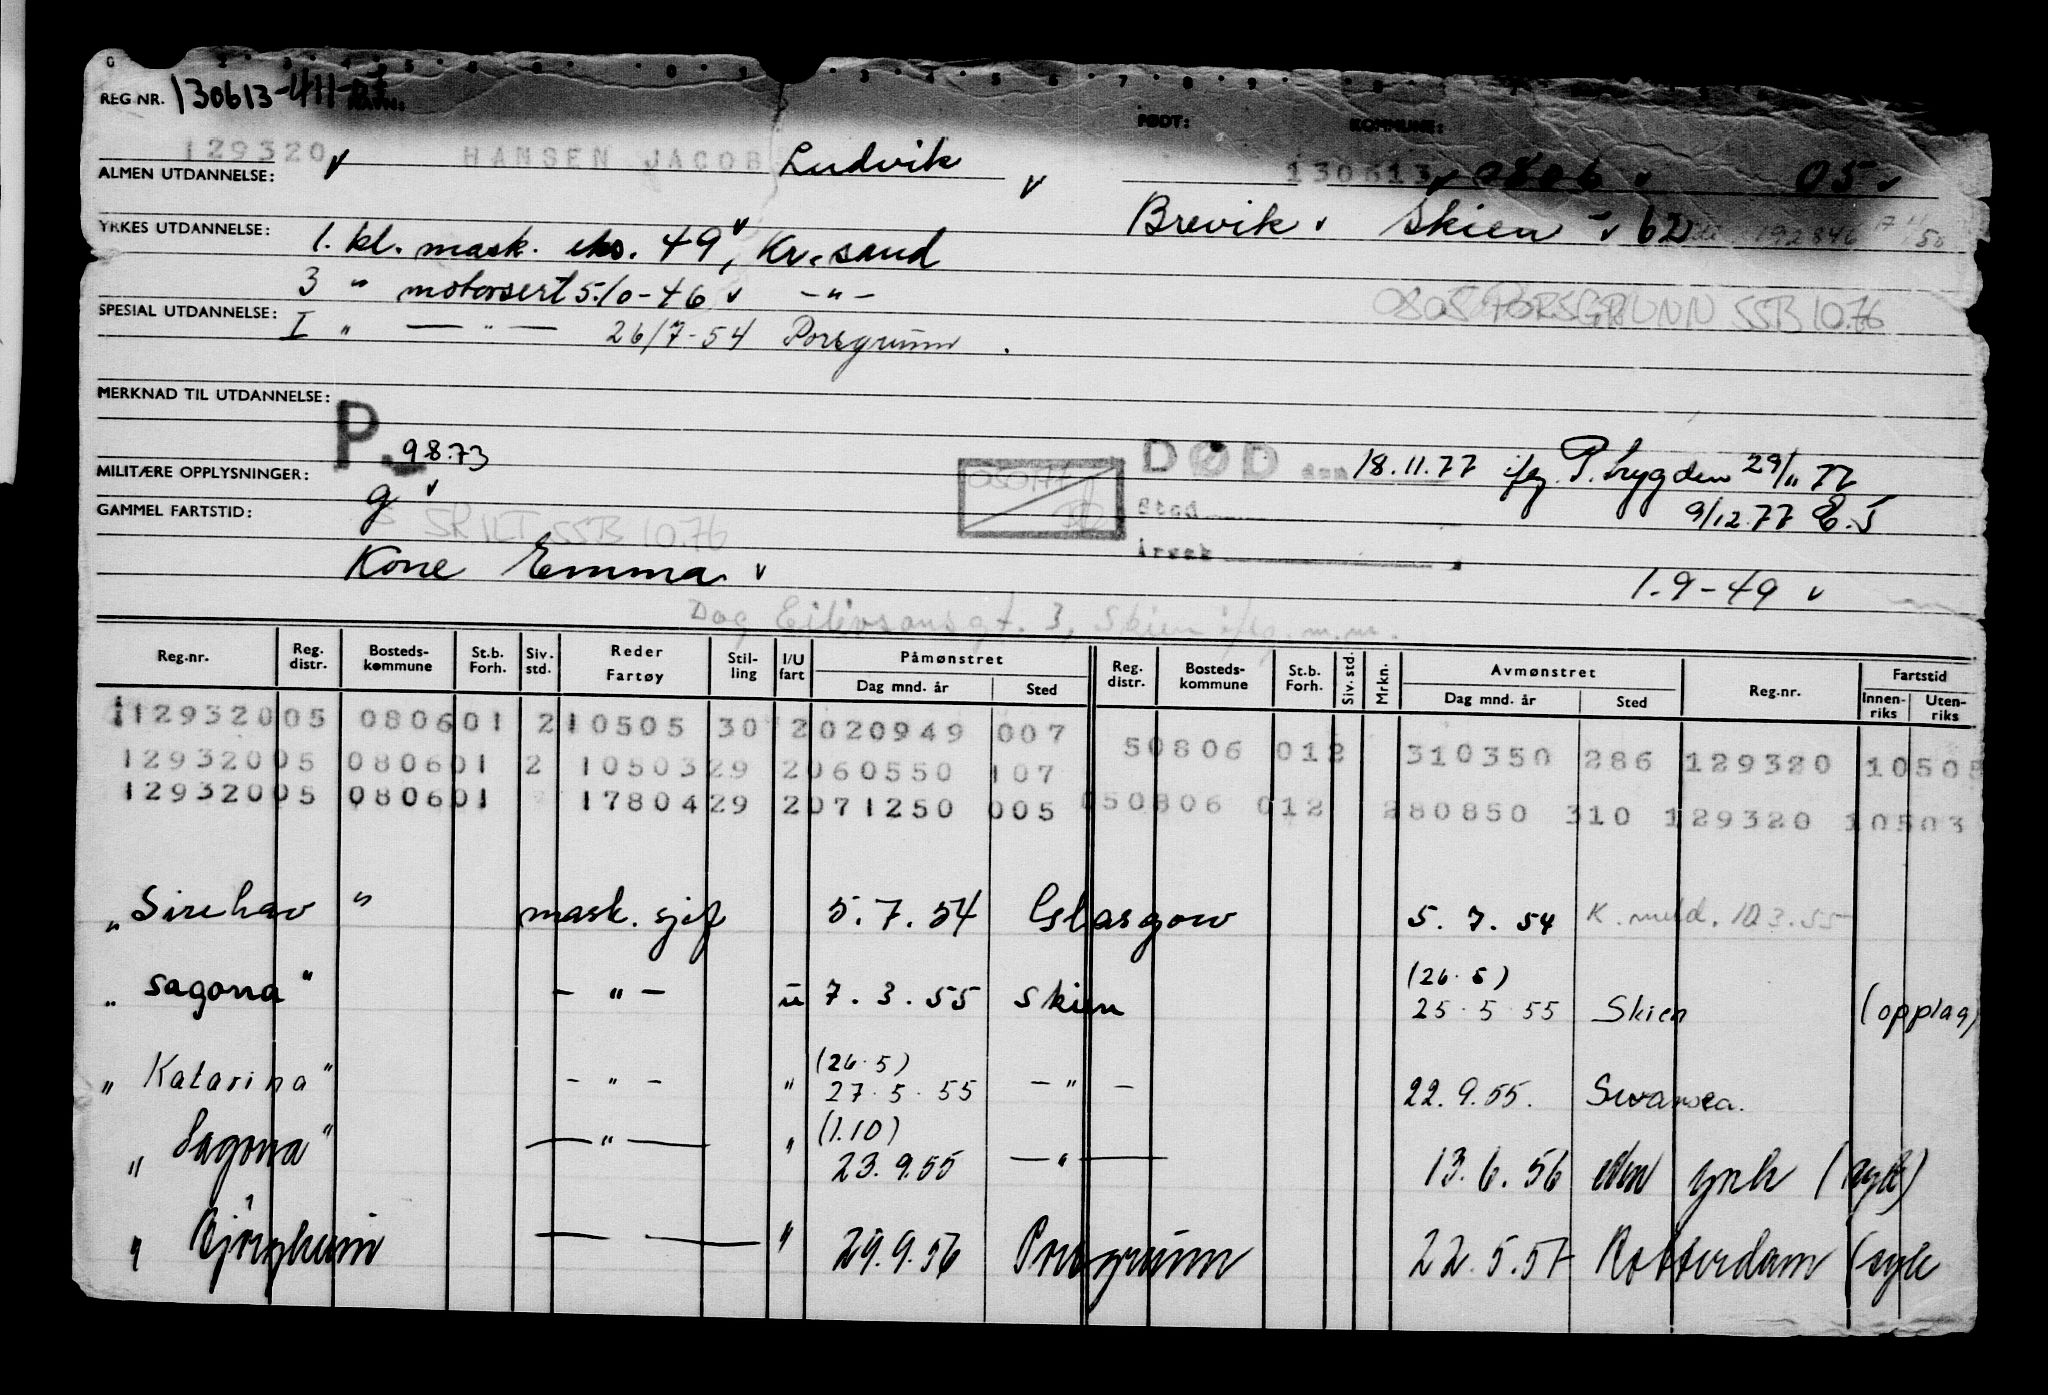 REG NR. 130613-411-
NAVN: FØDT: KOMMUNE:
129320 v HANSEN JACOB Ludvik v 130613 v 0806 v 05 v
ALMEN UTDANNELSE:
Brevik v Skien - v 62
YRKES UTDANNELSE: 1. kl. mask. eks. 49 v, Kr.sand
3 " motorsert 5.10-46 v -"-
0805 PORSGRUNN SSB 10.76
SPESIAL UTDANNELSE: I " —"— 26/7-54 Porsgrunn.
MERKNAD TIL UTDANNELSE:
P. 9873
DØD den 18.11.77 ifg. P.trygden 29/11 77
MILITÆRE OPPLYSNINGER: g v
Sted
9/12.77
GAMMEL FARTSTID:
SKILT SSB 10.76
Årsak
Kone Emma v
1.9-49 v
Dag Eilivsonsgt. 3, Skien ifg. m.m.
Reg.nr. Reg. distr. Bosteds-kommune St.b. Forh. Siv. std. Reder Fartøy Stil-ling I/U fart Påmønstret Dag mnd. år Sted Reg. distr. Bosteds-kommune St.b. Forh. Siv. std. Mrkn. Avmønstret Dag mnd. år Sted Reg.nr. Fartstid Innen-riks Uten-riks
129320 05 0806 01 2 10505 30 2 020949 007 50806 012 310350 286 129320 10505
129320 05 0806 01 2 10503 29 2 060550 107
129320 05 0806 01 17804 29 2 071250 005 050806 012 280850 310 129320 10503
"Sirehav" mask. sjef 5.7.54 Glasgow 5.7.54 K. meld. 10.3.55
"Sagona" -"- u 7.3.55 Skien (26.5) 25.5.55 Skien (opplag)
"Katarina" -"- " (26.5) 27.5.55 -"- 22.9.55. Swansea.
"Sagona" —"— " (1.10) 23.9.55 —"— 13.6.56 (syk)
"Bjørgheim — — " 29.9.56 Porsgrunn 22.5.57 Rotterdam (syk